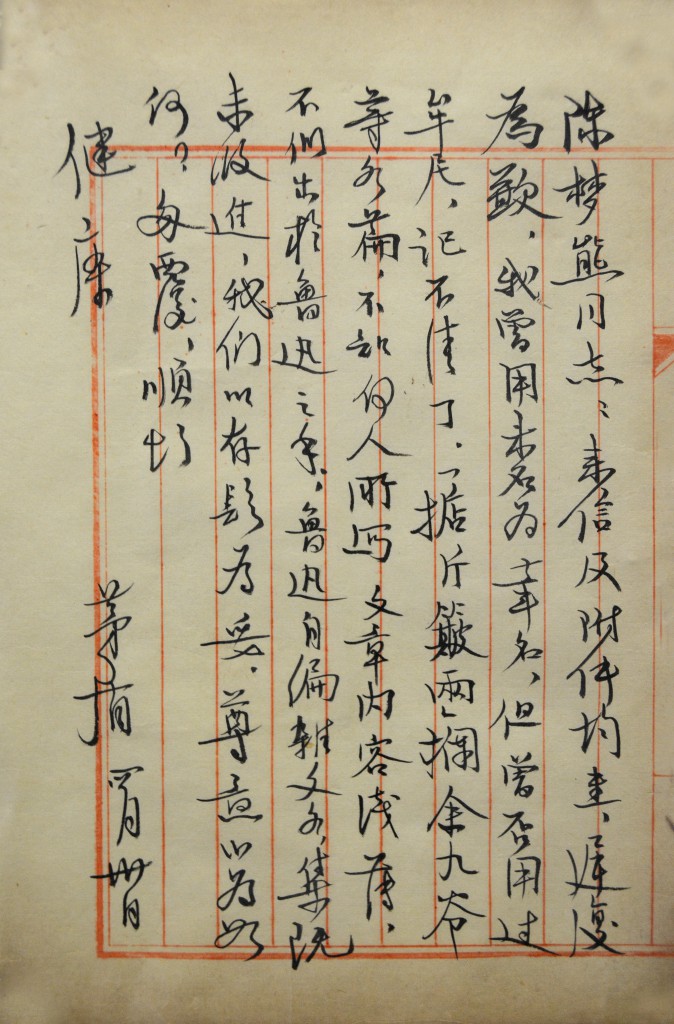 陈梦熊同志：来信及附件均悉，迟复
为歉，我曾用未名为笔名，但曾否用过
牟尼，记不清了，据片簸两拦余九
等各篇，不知何人所写，文章内容浅薄，
不似出于鲁迅之手，鲁迅自编杂文各集既
未收进，我们以存疑为妥，尊意以为如
何？匆覆，顺颂
健康
茅盾 四月卅日